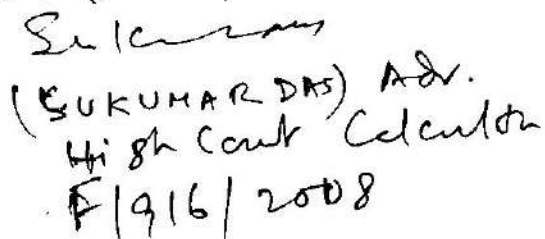 (SUKUMAR DAS) Adv.
High Court Calcutta
F/916/2008